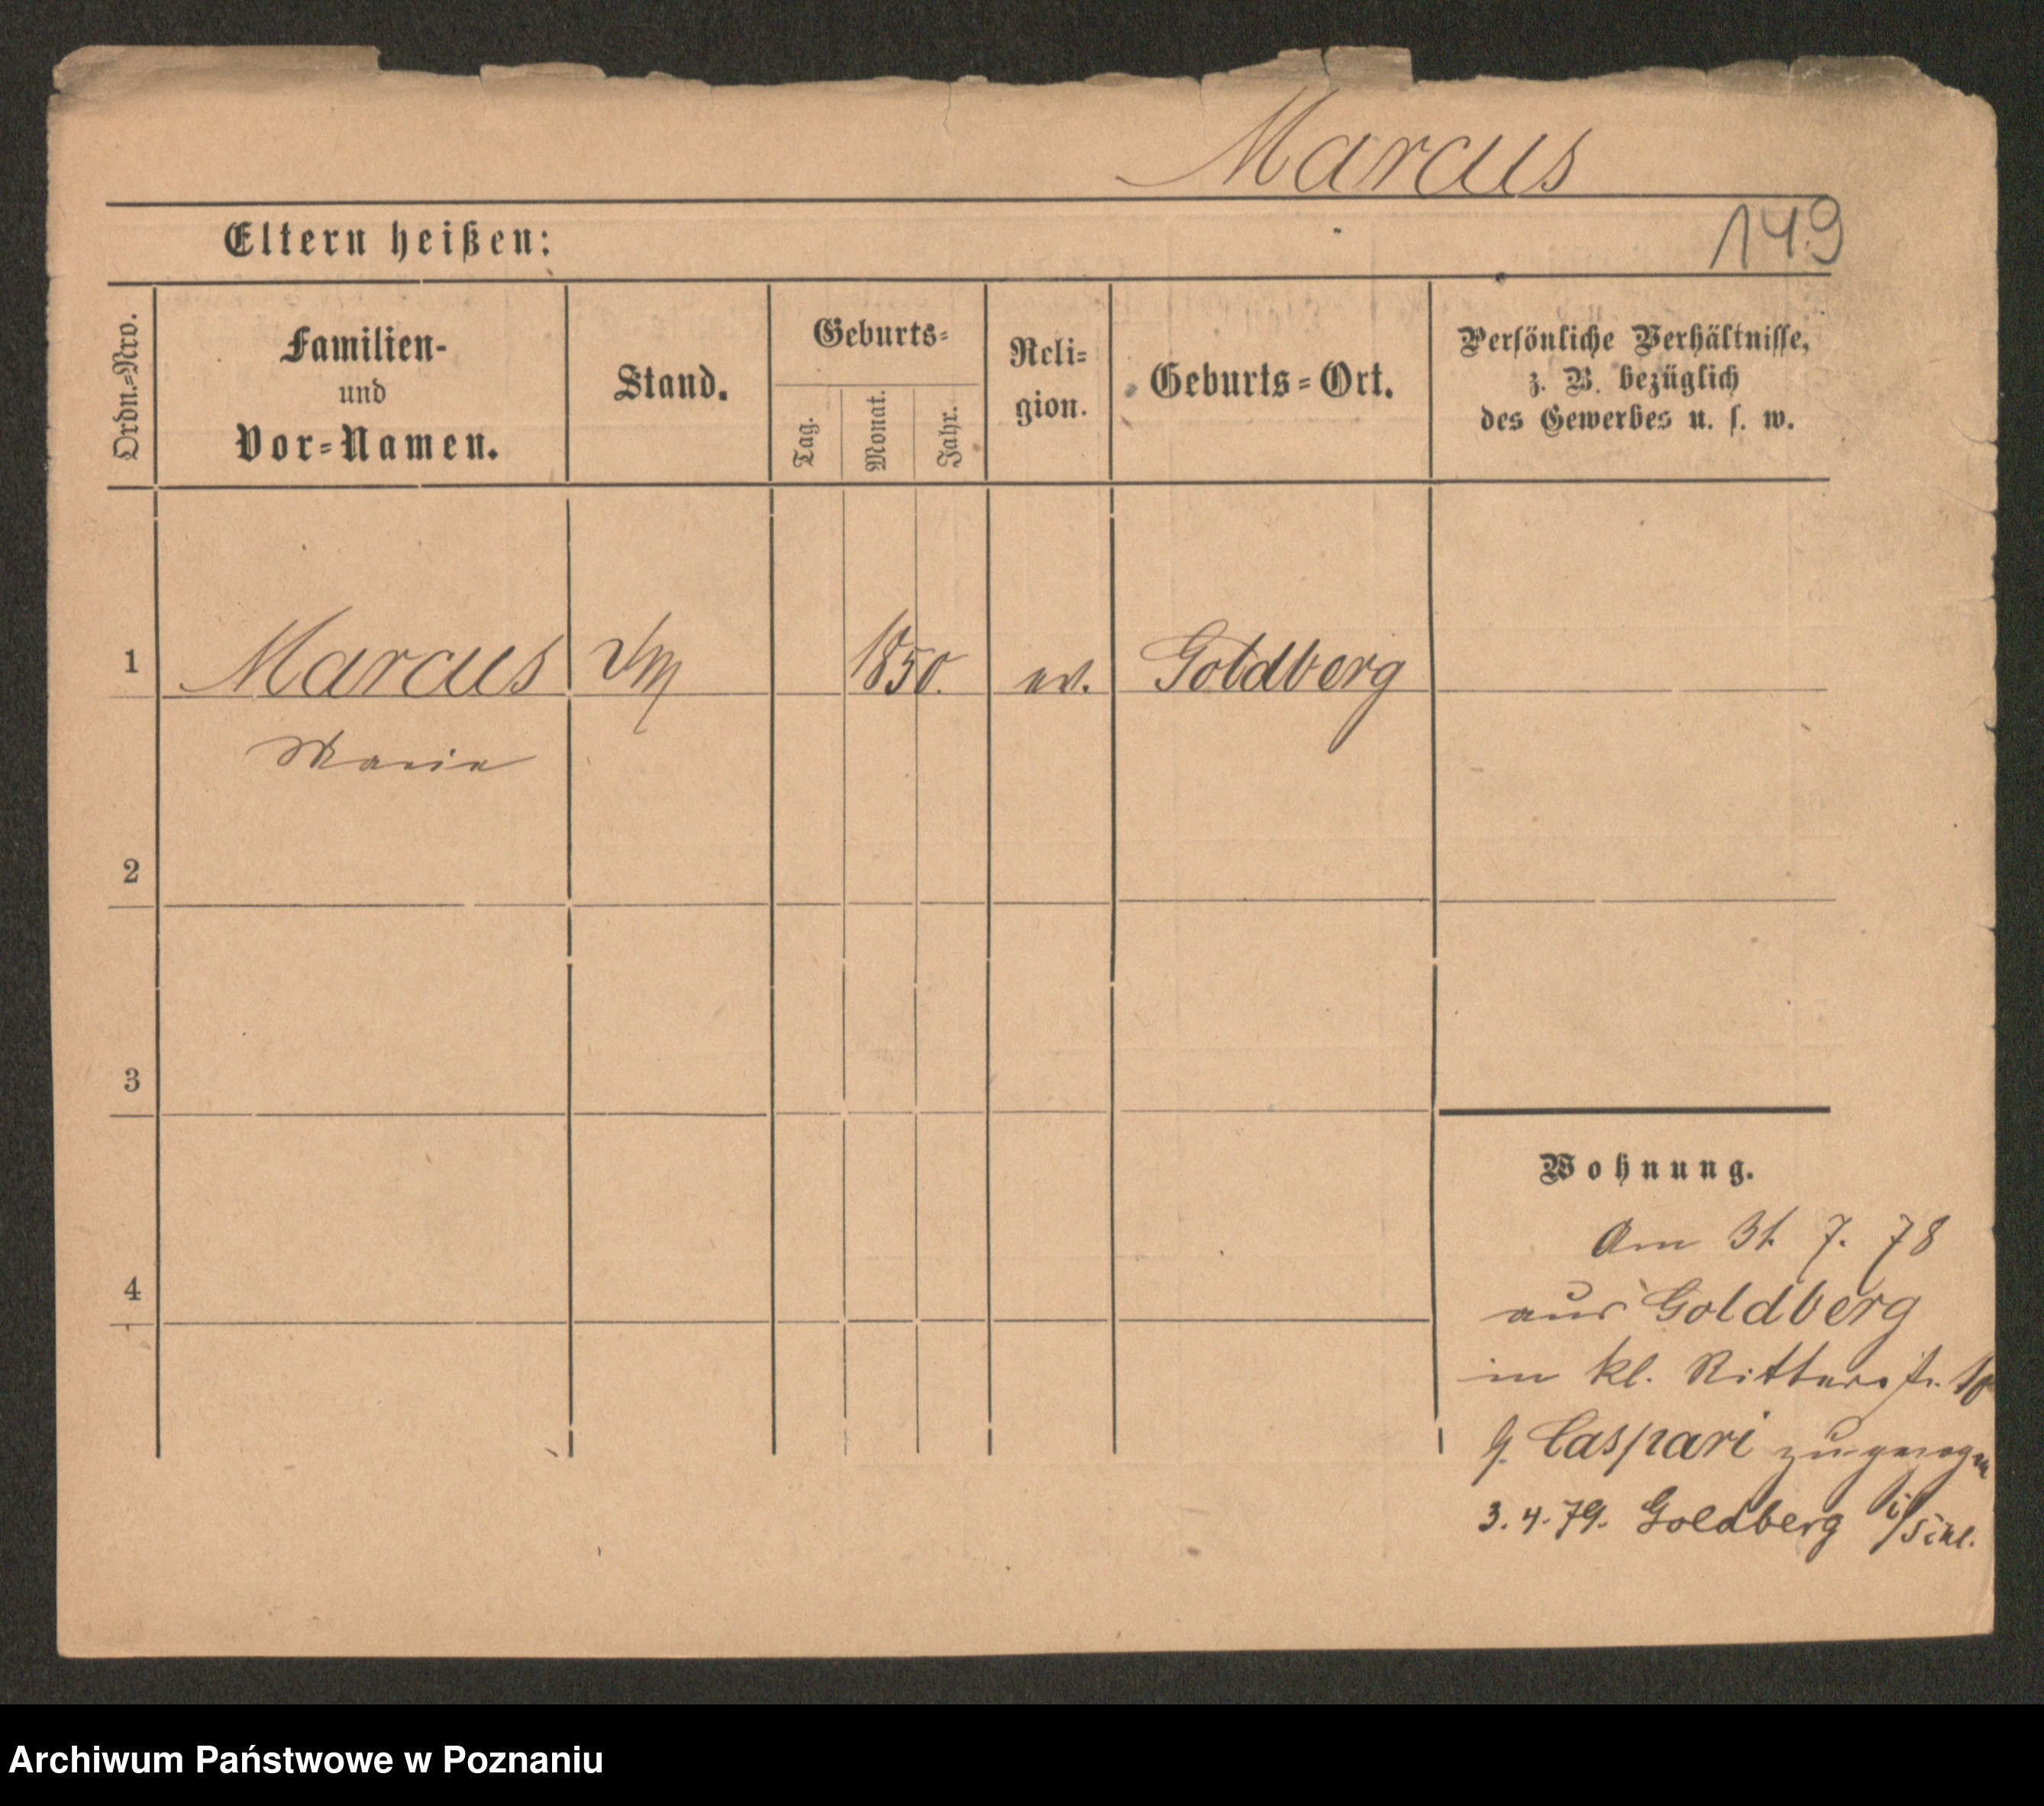 Marcus
149
Eltern heißen:
Ordn.=Nro.
Familien-
und
Vor=Namen.
Stand.
Geburts=
Tag.
Monat.
Jahr.
Reli=
gion.
Geburts=Ort.
Persönliche Verhältnisse,
z. B. bezüglich
des Gewerbes u. s. w.
1
Marcus
1850.
ev.
Goldberg
Marie
2
3
4
Wohnung.
Am 31. 7. 78
aus Goldberg
in kl. Ritterstr.
Caspari zugezogen
3.4.79. Goldberg i/Schl.
Archiwum Państwowe w Poznaniu